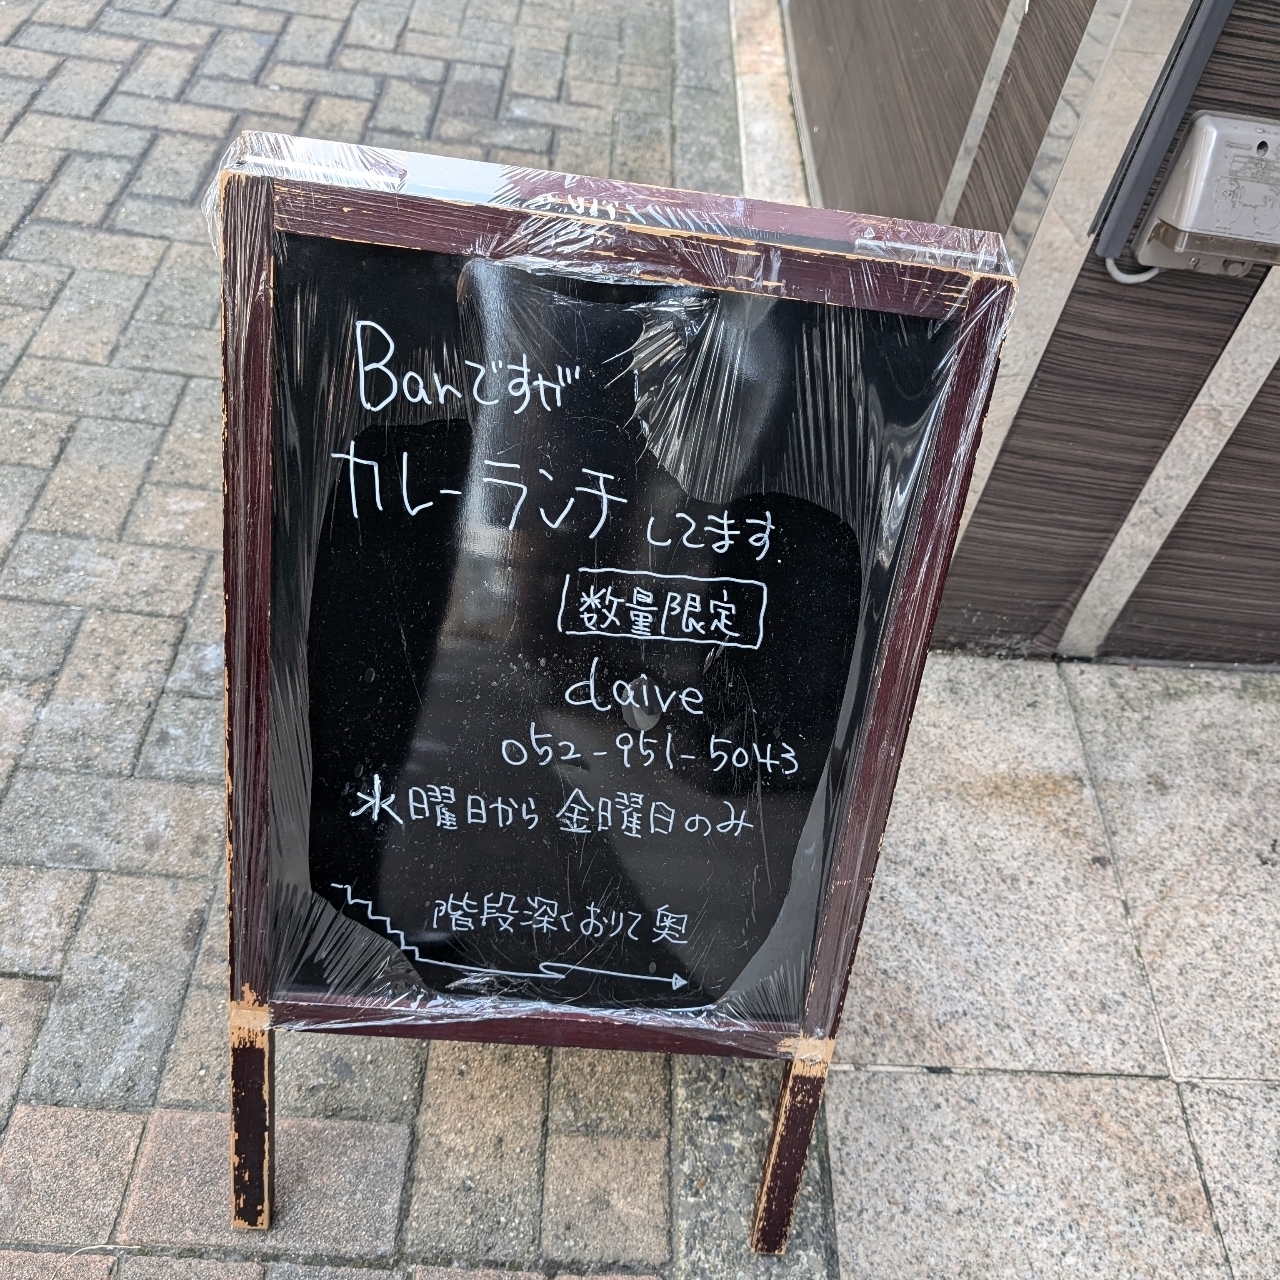 Barですが
カレーランチしてます.
数量限定
claive
052-951-5043
水曜日から金曜日のみ
階段深くおりて奥